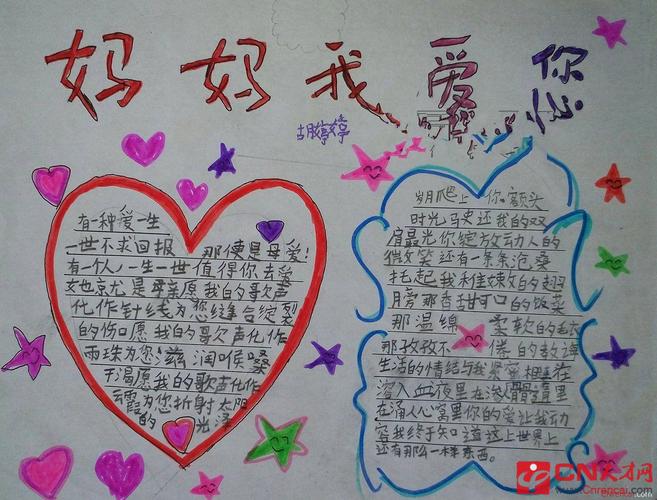 妈妈我爱你
胡婷婷
有一种爱一生
一世不求回报 那便是母爱！
有一个人，一生一世值得你去爱
她也就是母亲愿我的歌声
化作针线为您缝合绽裂
的伤口愿我的歌声化作
雨珠为您滋润喉嗓
干渴愿我的歌声化作
云霞为您折射太阳
的光泽
岁月爬上你额头
时光 还我的双
肩最光你绽放动人的
微笑还有一条条
托起我稚嫩的翅
膀那香甜可口的饭菜
那温绵 柔软的
那孜孜不 倦的教诲
生活的情结与我紧密相连在
溶入血液里在渗骨髓里
在涌心窝里你的爱让我动
容我终于知道这上世界上
还有那么一样东西。
CNRencai.com
CN人才网
www.cnrencai.com